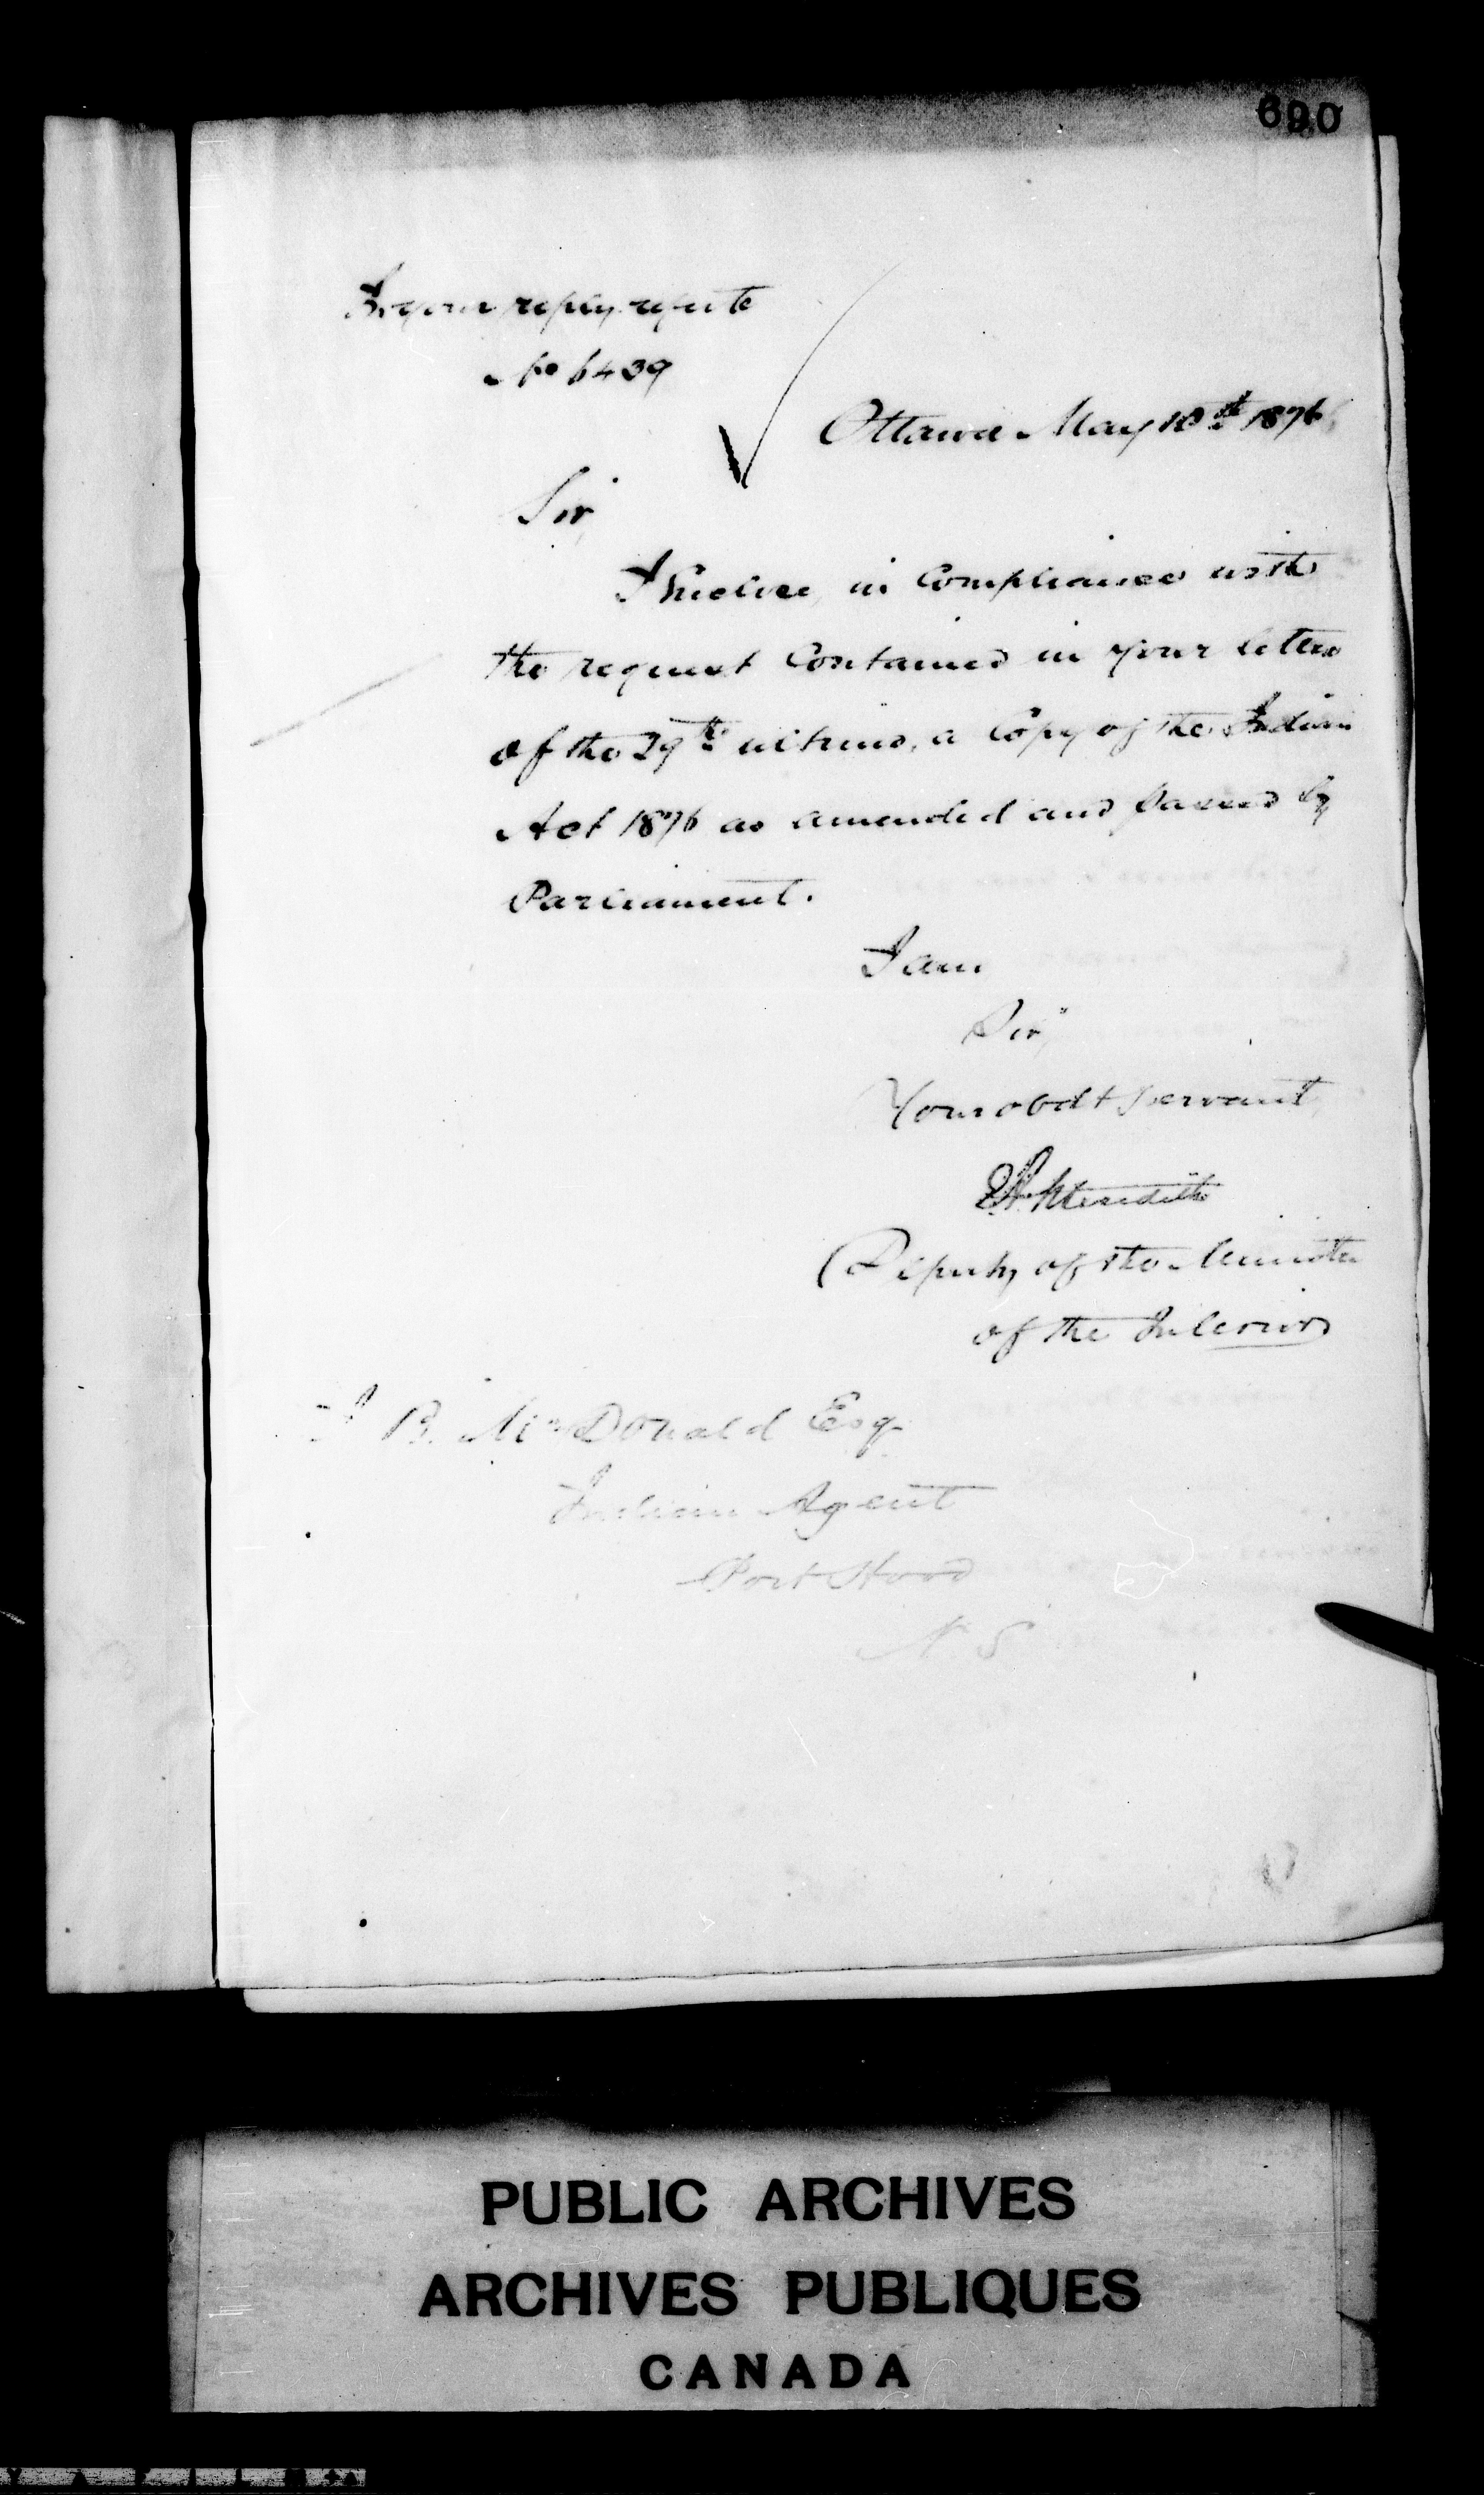 690
In your reply refer to
No 6439
Ottawa May 10th 1876
Sir,
I Enclose, in Compliance with
the request Contained in your letter
of the 29th ultimo, a Copy of the Indian
Act 1876 as amended and passed by
Parliament.
I am
Sir,
Your obdt servant,
Meredith
Deputy of the Minister
of the Interior
B. McDonald Esq
Indian Agent
Port Hood
N. S
PUBLIC ARCHIVES
ARCHIVES PUBLIQUES
CANADA